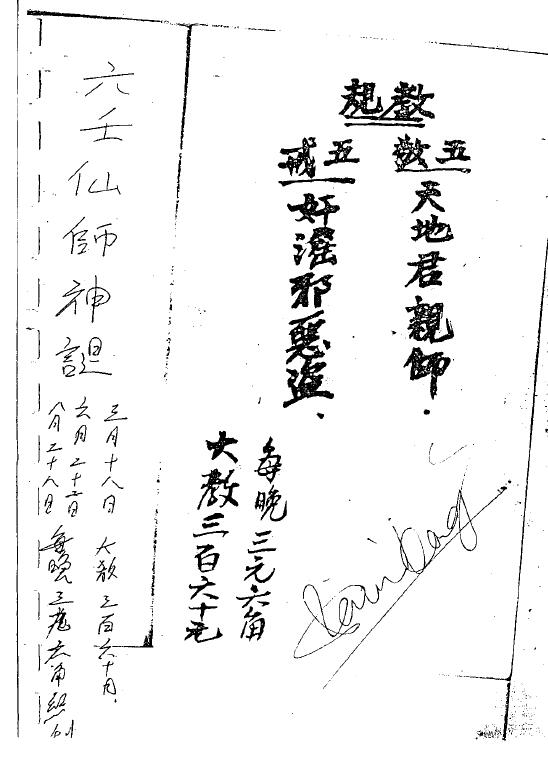 教規
五教
天地君親師.
五戒
奸淫邪惡盜.
每晚三元六角
大教三百六十元
六壬仙師神誕
三月十八日 大教三百六十
六月二十
八月二十八日 每晚三元六角